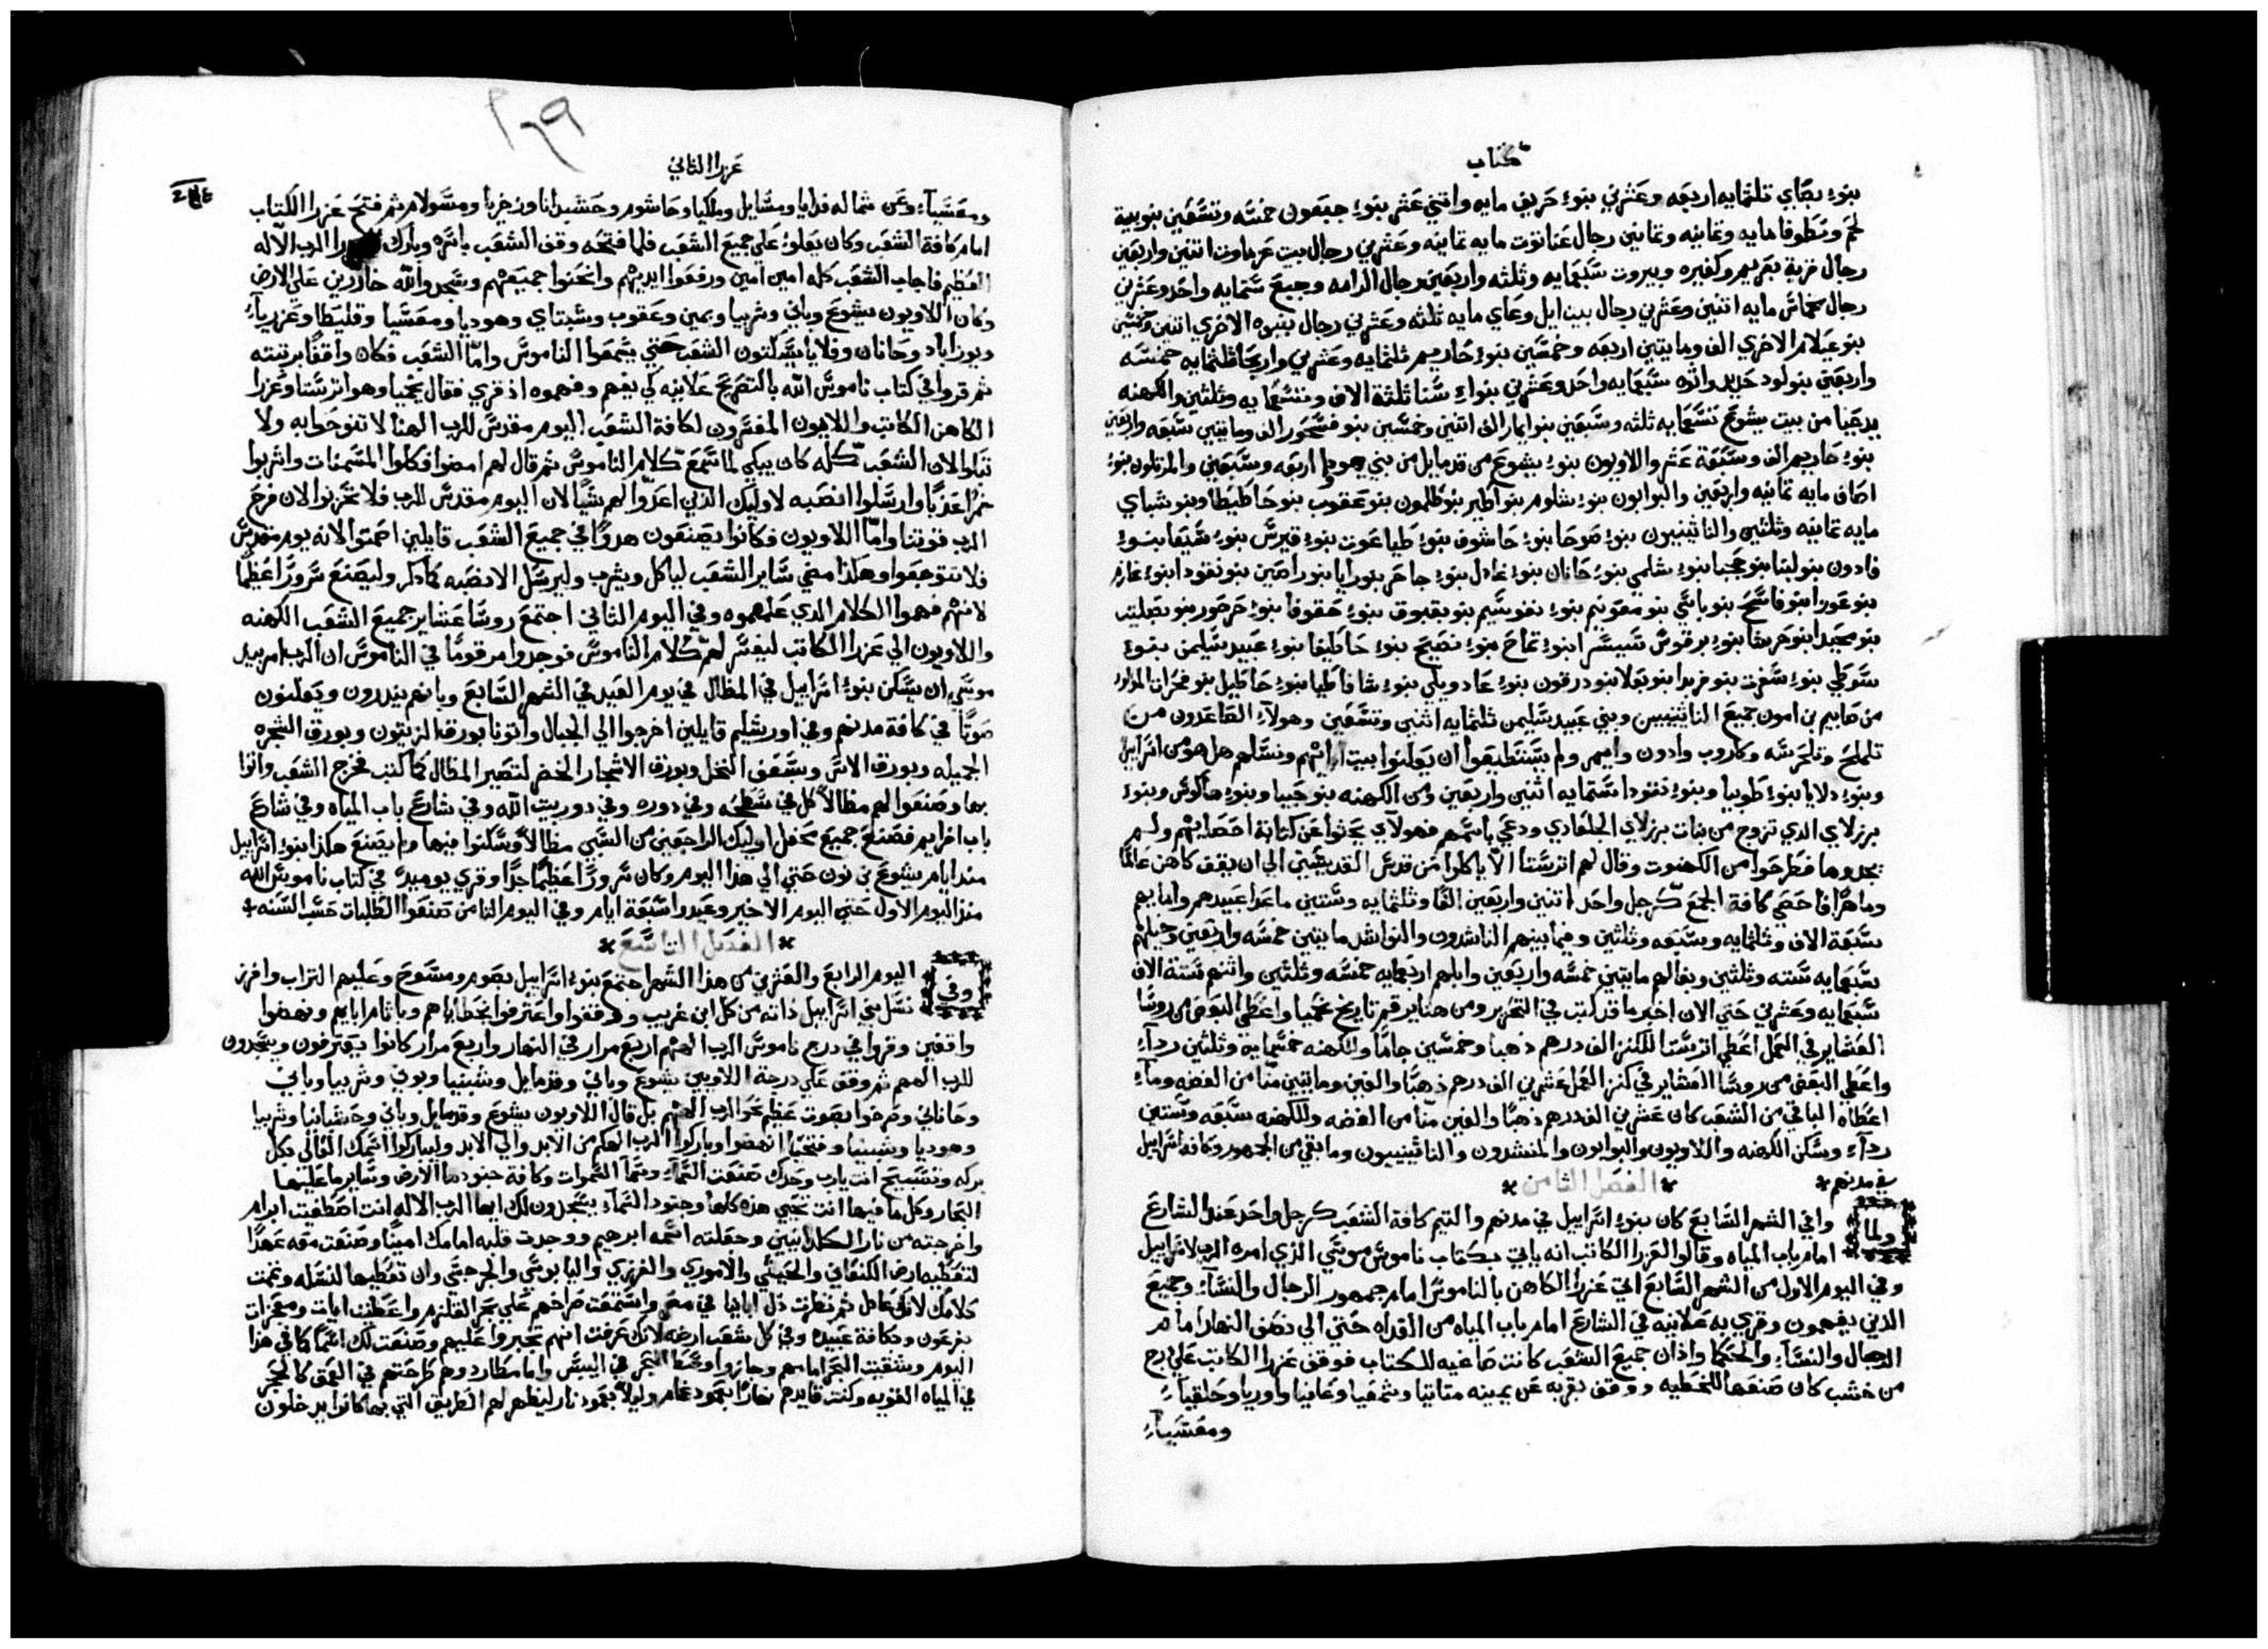 كتاب
بنوء بصاي تلثمايه اربعه وعشرين بنوء حريف مايه واثني عشر بنوء جبعون خمسه وتسعين بنو بيت
لحم ونطوفا مايه وثمانيه وثمانين رجال عناثوت مايه ثمانيه وعشرين رجال بيت عزماوت اثنين واربعين
رجال قرية يعريم وكفيره وبيروت سبعمايه وثلثه واربعين رجال الرامه وجبع ستمايه واحد وعشرين
رجال مخماس مايه اثنين وعشرين رجال بيت ايل وعاي مايه ثلثه وعشرين رجال بنبوه الاخري اثنين وخمسين
بنو عيلام الاخري الف ومايتين اربعه وخمسين بنوء حاريم ثلثمايه وعشرين واريحا ثلثمايه خمسه
واربعين بنو لود حديد وانوه سبعمايه واحد وعشرين بنواء سنا ثلثة الاف وتسعمايه وثلثين والكهنه
يدعيا من بيت يشوع تسعمايه ثلثه وسبعين بنو ايمار الف اثنين وخمسين بنو فسحور الف ومايتين سبعه واربعين
بنوء حاريم الف وسبعة عشر واللاويون بنوء يشوع من قدمايل من بني هوديا اربعه وسبعين والمرتلون بنوء
اصاف مايه ثمانيه واربعين والبوابون بنوء شلوم بنو اطير بنو طلمون بنو عقوب بنو حاطيطا وبنو شباي
مايه ثمانيه وثلثين والناثينيون بنوء صوحا بنوء حاشوف بنوء طباعوت بنوء قيرس بنوء سيعا بنوء
فادون بنو لبنا بنو حجبا بنوء شلمي بنوء حانان بنوء غادل بنوء جاحر بنو رايا بنو راصين بنو نقودا بنوء غازم
بنو عوزا بنو فاسح بنو باسي بنو معونيم بنوء نفوسيم بنو بقبوق بنوء حقوفا بنوء حرحور بنو بصليت
بنو محيدا بنو حرشا بنوء برقوس سيسرا بنوء تماح بنوء نصيح بنوء حاطيفا بنوء عبيد سليمن بنوء
سوطي بنوء سفرت بنو فريدا بنو يعلا بنو درقون بنوء غاد ويلي بنوء شافاطيا بنوء حاطيل بنو فخرات المولود
من صابيم بن امون جميع الناثينيين وبني عبيد سليمن ثلثمايه اثنين وتسعين وهولاء القاعدون من
تلملح وتلحرسه وكاروب وادون واميم ولم يستطيعوا ان يعلنوا بيت ابايهم ونسلهم هل هو من اسراييل
وبنوء دلايا بنوء طوبيا وبنوء نقودا ستمايه اثنين واربعين ومن الكهنه بنو حبيا وبنوء هاكوس وبنوء
برزلاي الذي تزوج من بنات برزلاي الجلعادي ودعي باسمهم فهولاي بحثوا عن كتابة احصايهم ولم
يجدوها فطرحوا من الكهنوت وقال لهم اترستا الا ياكلوا من قدس القديسين الي ان يقف كاهن عالما
وماهرا فاحصي كافة الجمع كرجل واحد اثنين واربعين الفا وثلثمايه وستين ماعدا عبيدهم وامايهم
سبعة الاف وثلثمايه وسبعه وثلثين وفيما بينهم الناشدون والنواشد مايتين خمسه واربعين وخيلهم
سبعمايه سته وثلثين وبغالهم مايتين خمسه واربعين وابلهم اربعمايه خمسه وثلثين واتنهم ستة الاف
سبعمايه وعشرين حتي الان اخبر ما قد كتب في التحرير ومن هنا يرقم تاريخ نحميا واعطي البعض من روسا
العشاير في العمل اعطي اترستا للكنز الف درهم ذهبا وخمسين جاما وللكهنه خمسمايه وثلثين رداء
واعطي البعض من روسا العشاير في كنز العمل عشرين الف درهم ذهبا والفين ومايتين منا من الفضه وماء
اعطاه الباقي من الشعب كان عشرين الف درهم ذهبا والفين منا من الفضه وللكهنه سبعه وستين
رداء وسكن الكهنه واللاويون والبوابون والمنشدون والناثينيون وما بقي من الجمهور وكافة اسراييل
في مدنهم * * الفصل الثامن *
ولما وافي الشهر السابع كان بنوء اسراييل في مدنهم والتيم كافة الشعب كرجل واحد عند الشارع
امام باب المياه وقالوا لعزرا الكاتب انه ياتي بكتاب ناموس موسي الذي امره الرب لاسراييل
وفي اليوم الاول من الشهر السابع اتي عزرا الكاهن بالناموس امام جمهور الرجال والنساء وجميع
الذين يفهمون وقري به علانيه في الشارع امام باب المياه من الغداه حتي الي نصف النهار امام
الرجال والنساء والحكما واذان جميع الشعب كانت صاغيه للكتاب فوقف عزرا الكاتب علي درج
من خشب كان صنعها للخطيه ووقف بقربه عن يمينه متاتيا وشمعيا وعانيا واوريا وحلقياء
ومعسياء
عزرا الثاني
ومعسياء وعن شماله فدايا ومسايل وملكيا وحاشوم وحشبدانا وزخريا ومسولام ثم فتح عزرا الكتاب
امام كافة الشعب وكان يعلوء علي جميع الشعب فلما فتحه وقف الشعب باسره وبارك عزرا الرب الاله
العظيم فاجاب الشعب كله امين امين ورفعوا ايديهم وانحنوا جميعهم وسجدوا لله خاررين علي الارض
وكان اللاويون يشوع وباني وشربيا ويمين وعقوب وشبتاي وهوديا ومعسيا وقليطا وعزرياء
ويوزاباد وحانان وفلايا يسكتون الشعب حتي يسمعوا الناموس واما الشعب فكان واقفا برتبته
ثم قروا في كتاب ناموس الله بالتصريح علانيه كي يفهم وفهموه اذ قري فقال نحميا وهو اترستا وعزرا
الكاهن الكاتب واللاويون المفسرون لكافة الشعب اليوم مقدس للرب الهنا لا تنوحوا به ولا
تبكوا لان الشعب كله كان يبكي لما سمع كلام الناموس ثم قال لهم امضوا فكلوا المسمنات واشربوا
خمرا عذبا وارسلوا انصبه لاوليك الذين اعدوا لهم شيا لان اليوم مقدس للرب فلا تحزنوا لان فرح
الرب قوتنا واما اللاويون فكانوا يصنعون هدوا في جميع الشعب قايلين اصمتوا لانه يوم مقدس
فلا تتوجعوا وهكذا مضي ساير الشعب لياكل ويشرب وليرسل الانصبه كما ذكر وليصنع سرورا عظيما
لانهم فهموا الكلام الذي علمهموه وفي اليوم الثاني اجتمع روسا عشاير جميع الشعب الكهنه
واللاويون الي عزرا الكاتب ليفسر لهم كلام الناموس فوجدوا مرقوما في الناموس ان الرب امر بيد
موسي ان يسكن بنوء اسراييل في المظال في يوم العيد في الشهر السابع وبانهم يندرون ويعلنون
صوتا في كافة مدنهم وفي اورشليم قايلين اخرجوا الي الجبال واتونا بورق الزيتون وبورق الشجره
الجميله وبورق الاس وسعف النخل وبورق الاشجار الخضر لتصير المظال كما كتب فخرج الشعب واتوا
بها وصنعوا لهم مظالا كل في سطحه وفي دوره وفي دور بيت الله وفي شارع باب المياه وفي شارع
باب افرايم فصنع جميع محفل اوليك الراجعين من السبي مظالا وسكنوا فيها ولم يصنع هكذا بنوء اسراييل
منذ ايام يشوع بن نون حتي الي هذا اليوم وكان سرورا عظيما جدا وقري يوميد في كتاب ناموس الله
منذ اليوم الاول حتي اليوم الاخير وعيدوا سبعة ايام وفي اليوم الثامن صنعوا الطلبات حسب السنه
* الفصل التاسع *
وفي اليوم الرابع والعشرين من هذا الشهر اجتمع بنوء اسراييل بصوم ومسوح وعليهم التراب وافرز
نسل بني اسراييل ذاته من كل ابن غريب ووقفوا واعترفوا بخطاياهم وباثام ابايهم ونهضوا
واقفين وقروا في درج ناموس الرب الههم اربع مرار في النهار واربع مرار كانوا يعترفون ويسجدون
للرب الههم ثم وقف علي درجة اللاويين يشوع وباني وقدمايل وشبنيا وبوني وشربيا وباني
وحاناني وصرخوا بصوت عظيم نحو الرب الههم بل قال اللاويون يشوع وقدمايل وباني وحشبانيا وشربيا
وهوديا وشبنيا وفتحيا انهضوا وباركوا الرب الهكم من الابد والي الابد وليباركوا اسمك العالي بكل
بركه وتسبيح انت يارب وحدك صنعت السماء وسما السموات وكافة جنودها الارض وساير ما عليها
البحار وكل ما فيها انت تحيي هذه كلها وجنود السماء يسجدون لك ايها الرب الاله انت اصطفيت ابرام
واخرجته من نار الكلدانيين وجعلته اسمه ابرهيم ووجدت قلبه امامك امينا وصنعت معه عهدا
لتعطيه ارض الكنعاني والحيثي والاموري والفرزي واليابوسي والجرجسي وان تعطيها لنسله وتممت
كلامك لانك عادل ثم نظرت ذل ابايا في مصر واستمعت صراخهم علي بحر القلزم واعطيت ايات ومعجزات
بفرعون وبكافة عبيده وفي كل شعب ارضه لانك عرفت انهم تجبروا عليهم وصنعت لك اسما كما في هذا
اليوم وشقيت البحر امامهم وجازوا وسط البحر في اليبس واما مطاردوهم طرحتهم في العمق كالحجر
في المياه القويه وكنت قايدهم نهارا بعمود غمام وليلا بعمود نار ليظهر لهم الطريق التي بها كانوا يدخلون